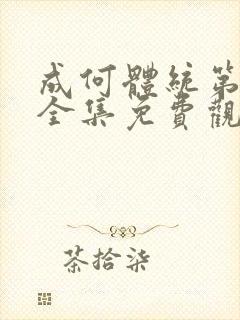 成何體統第
全集免費觀
茶拾柒